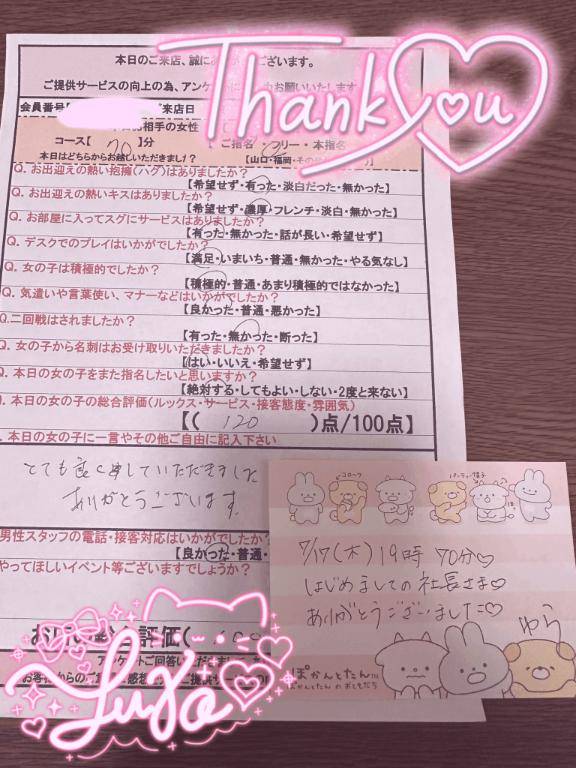 本日のご来店、誠にあ
ざいます。
Thank you
ご提供サービスの向上の為、アンケ
お願いいたします
会員番号【
ご来店日
相手の女性
コース【 70 】分
ご指名
フリー・本指名
本日はどちらからお越しいただきました?
【山口・福岡・その
Q. お出迎えの熱い抱擁(ハグ)はありましたか?
【希望せず・有った・淡白だった・無かった】
Q. お出迎えの熱いキスはありましたか?
【希望せず・濃厚・フレンチ・淡白・無かった】
Q. お部屋に入ってスグにサービスはありましたか?
【有った・無かった・話が長い・希望せず】
Q. デスクでのプレイはいかがでしたか?
【満足・いまいち・普通・無かった・やる気なし】
Q. 女の子は積極的でしたか?
【積極的・普通・あまり積極的ではなかった】
Q. 気遣いや言葉使い、マナーなどはいかがでしたか?
【良かった・普通・悪かった】
Q.二回戦はされましたか?
【有った・無かった・断った】
Q. 女の子から名刺はお受け取りいただきましたか?
【はい・いいえ・希望せず】
Q. 本日の女の子をまた指名したいと思いますか?
【絶対する・してもよい・しない・2度と来ない】
. 本日の女の子の総合評価(ルックス・サービス・接客態度・雰囲気)
【( 120 )点/100点】
. 本日の女の子に一言やその他ご自由に記入下さい
とても良くしていただきました
ありがとうございます
男性スタッフの電話・接客対応はいかがでしたか?
【良かった・普通・
やってほしいイベント等ございますでしょうか?
評価(
アンケートご回答いただきまし
お客様からのご
Yura
7/17(木)19時 70分♡
はじめましての社長さま♡
ありがとうございました♡
ゆら
ぽかんとたん
ぽかんとたん の おともだち